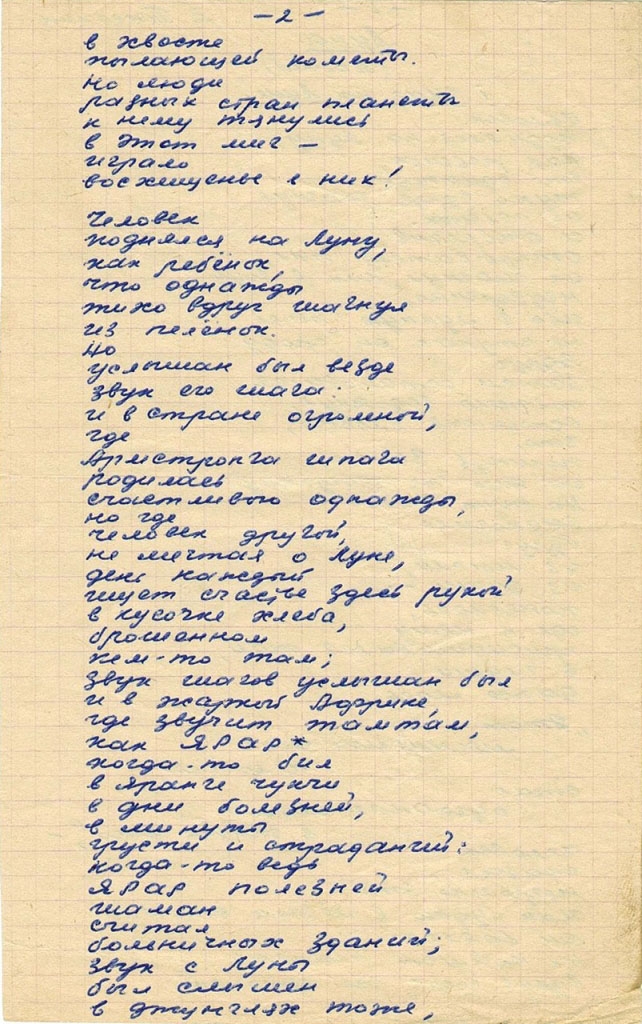 - 2 -
в хвосте
пылающей кометы.
Но люди
разных стран планеты
к нему тянулись
в этот миг —
играло
восхищенье в них!
Человек
поднялся на Луну,
как ребёнок,
что однажды
тихо вдруг шагнул
из пелёнок.
Но
услышан был везде
звук его шага:
и в стране огромной,
где
Армстронга шпага
родилась
счастливою однажды,
но где
человек другой,
не мечтая о Луне,
день каждый
ищет счастье здесь рукой
в кусочке хлеба,
брошенном
кем-то там;
звук шагов услышан был
и в жаркой Африке,
где звучит тамтам,
как ЯРАР*
когда-то бил
в яранге чукчи
в дни болезней,
в минуты
грусти и страданий:
когда-то ведь
ЯРАР полезней
шаман
считал
больничных зданий;
звук с Луны
был слышен
в джунглях тоже,